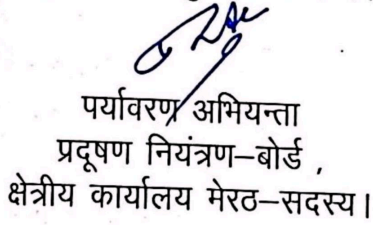 पर्यावरण अभियन्ता
प्रदूषण नियंत्रण–बोर्ड ,
क्षेत्रीय कार्यालय मेरठ–सदस्य।